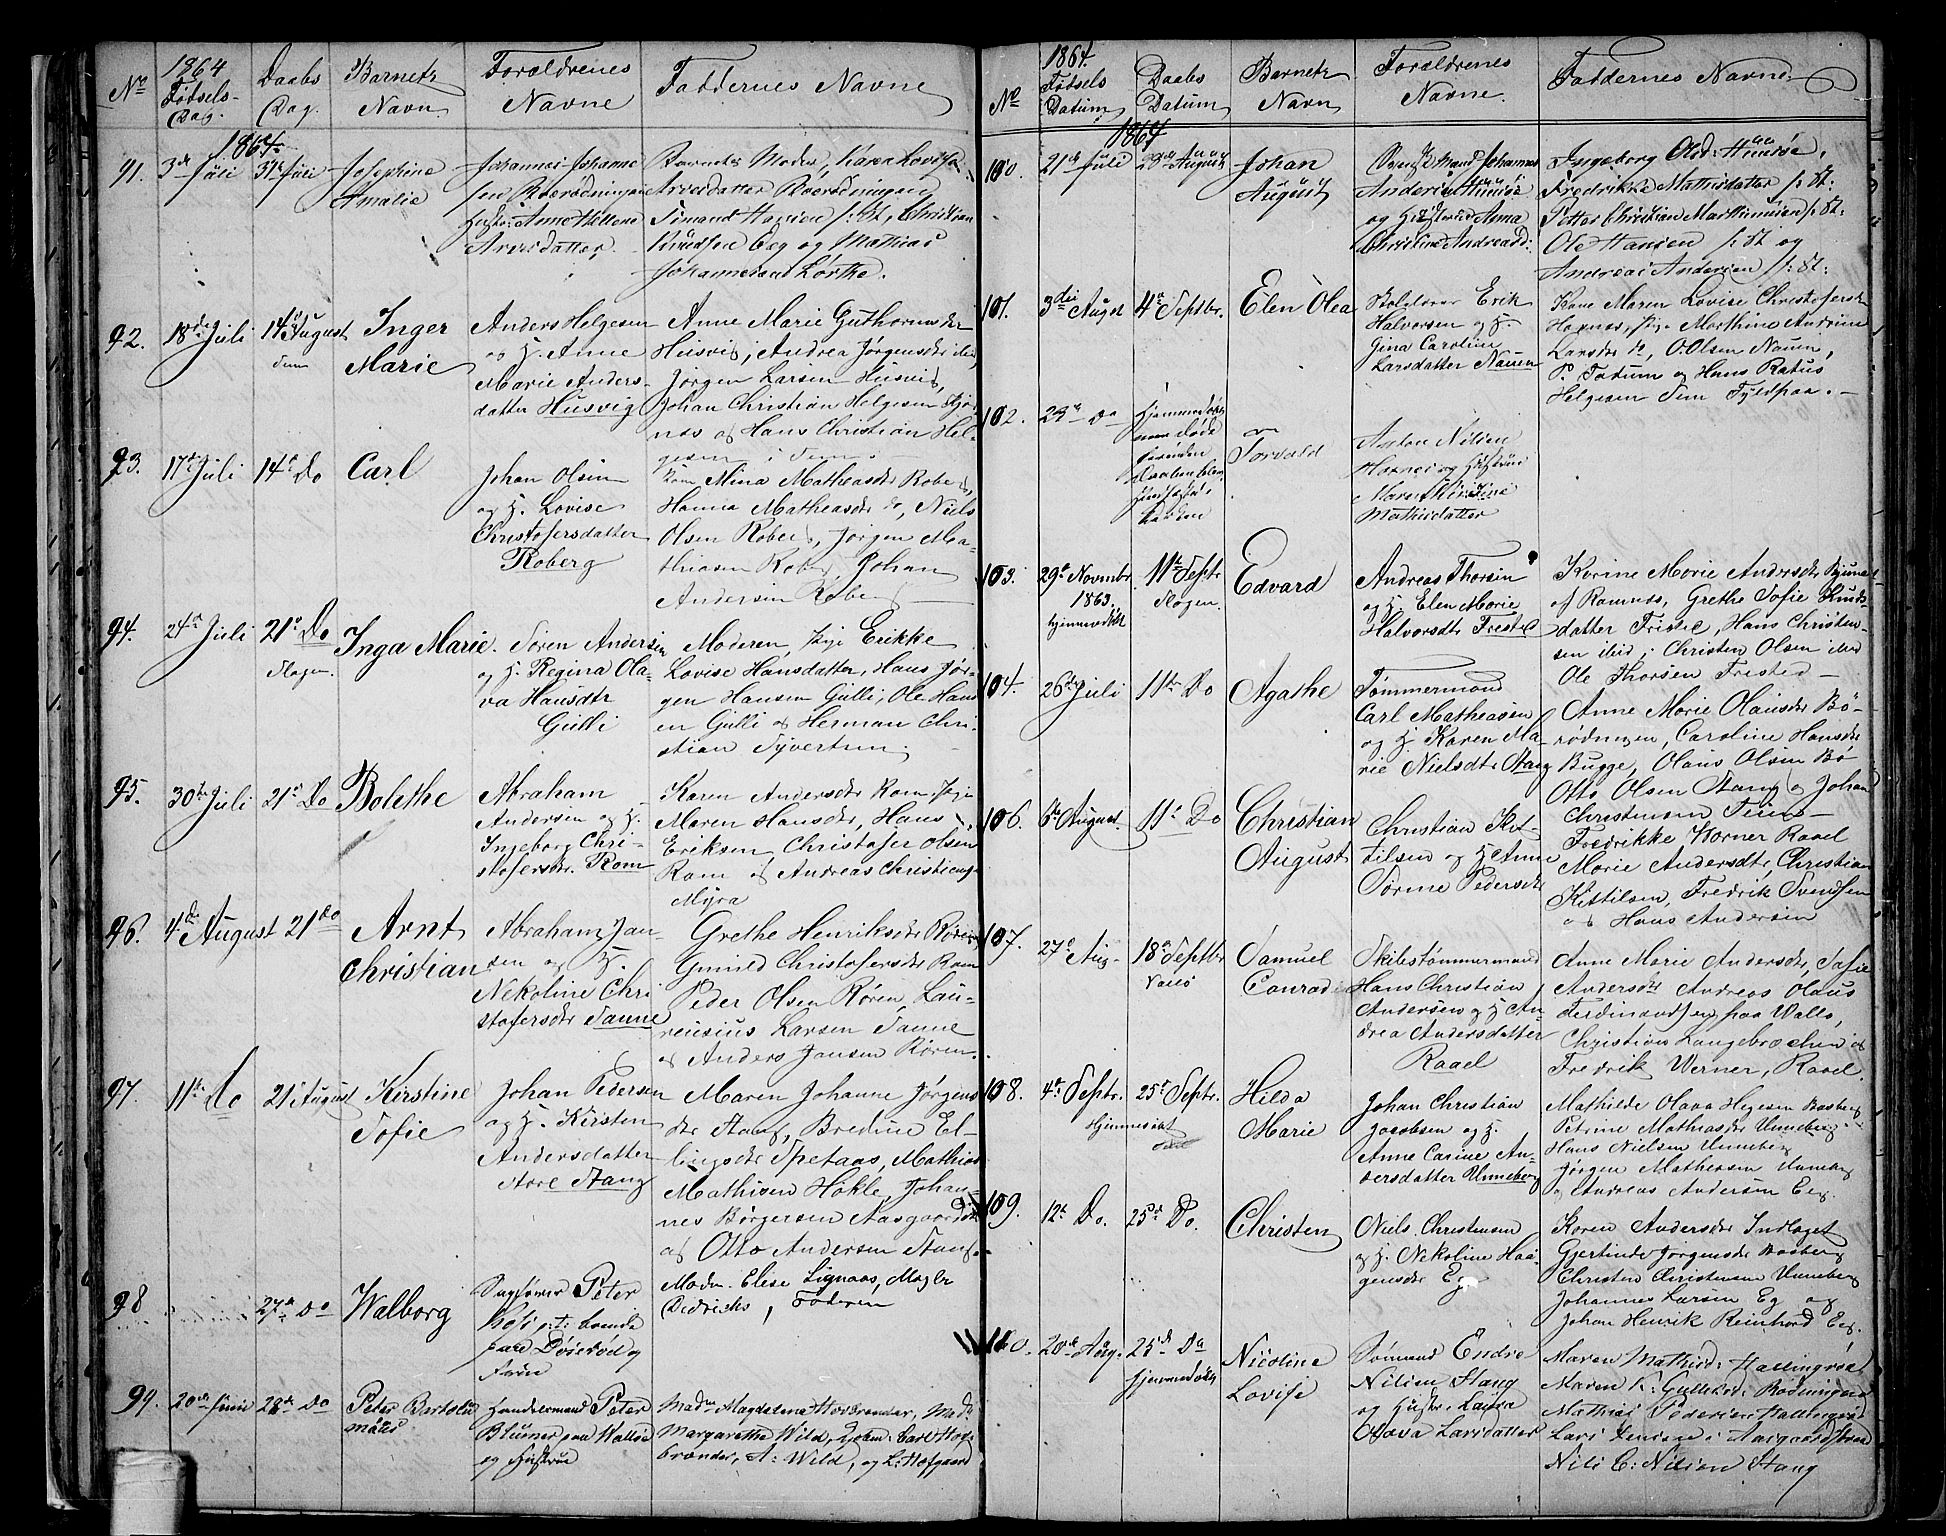 1864
No
Fødsels-
Dag.
Daabs
Dag.
Barnets
Navn
Forældrenes
Navne
Faddernes Navne
1864
91.
3de Juli
31te Juli
Josephine
Amalie
Johannes Johanne
sen
Hustr: Anne Hellene
Arvesdatter
Barnets Moder, Karen Lovise
Arvesdatter
Simand Hansen /: St, Christian
Knudsen Eeg og Mathias
Johannesens Lørthe.
92.
18de Juli
14 August
Sem
Inger
Marie
Anders Helgesen
og H. Anne
Marie Anders-
datter Husvig
Anne Marie Guthormsder
Husvig, Andrea Jørgensdr ibid,
Jørgen Larsen Husvig,
Johan Christian Helgesen
og Hans Christian Hel-
gesen i Sem
93.
17de Juli
14de Do
Carl
Johan Olsen
og H. Lovise
Christofersdatter
Roberg
Kone Mina Matheasdr Roberg,
Hanna Matheasdr do, Niels
Olsen Roberg, Jørgen Ma-
thiasen Roberg Johan
Andersen Roberg
94.
24de Juli
21de Do
Slagen.
Inga Marie.
Søren Andersen
og H. Regina Ola-
va Hansdtr
Gulli
Moderen, Pige Erikke
Lovise Hansdatter, Hans Jør-
gen Hansen Gulli, Ole Hans
en Gulli og Herman Chri-
stian Syvertsen.
95.
30te Juli
21de Do
Bolethe
Abraham
Andersen og H.
Ingeborg Chri-
stofersdr. Rom
Karen Andersdr Rom, Pige
Maren Hansdr, Hans
Eriksen, Christofer Olsen
Rom og Andreas Christiens-
Myra
96.
4de August
21de Do
Arnt
Christian
Abraham Jan-
sen og H.
Nekoline Chri
stofersdr Sanne
Grethe Henriksdr Røren
Gunild Christofersdr Rom
Peder Olsen Røren, Lau-
rensius Larsen Sanne
og Anders Jansen Røren.
97.
11te Do
21de August
Kirstine
Sofie
Johan Pedersen
og H. Kirsten
Andersdatter
Store Stang
Maren Johanne Jørgens
dr Stang, Bredine El-
lingsdr Spetaas, Mathias
Mathisen Høkle, Johan-
nes Børgersen Aasgaard
og Otto Andersen Stang.
98
27de Do
Walborg
Peter
og
Fruen
Madm. Elise Lignaas, Mayler
Didrichs, Faderen
99.
20de Juni
28de Do
Peter Bartolo
mæus
Handelsmand Peter
Blumer paa Valløe
og Hustrue
Madm Magdelena Hofbrender, Madm
Margarethe Wild, Carl Hof-
brender, A: Wild, og L: Hofgaard
1864.
No
Fødsels
Datum
Daabs
Datum
Barnets
Navn
Forældrenes
Navne.
Faddernes Navne
1864
100.
21de Juli
August
Johan
August
Johannes
Andersen
og Hustrue Anna
Christine Andreasd:
Ingeborg Olsd:
Fredrikke Mathisdatter /: St:
Petter Christian Marthinusen /: St:
Ole Hansen /: St og
Andreas Andersen /: St:
101.
3die August
4de Septbr.
Elen Olea
Erik
Halvorsen og H.
Gina Caroline
Larsdatter Nauen
Kone Maren Lovise Christofersdr
Haxnes, Pige Marthine Andrine
Larsdr do, O. Olsen Nauen,
P. Tatum og Hans Ratus
Helgesen Sem Fyldpaa.
102.
29de Do
Hjemmedøbt
men døde
forinden
Daaben blev
Torvald
Anton Nilsen
Haxnes og Hustrue
Maren Christine
Mathisdatter
103.
29de Novmbr.
1863
Hjemmedøbt
11te Septr
Slagen.
Edvard
Andreas Thorsen
og H. Elen Marie
Halvorsdtr Frested
Karine Marie Andersdr Bjune
af Ramnes, Grethe Sofie Knuds
datter Fristed, Hans Christen-
sen ibid, Christen Olsen ibid
Ole Thorsen Frested
104.
26de Juli
11te Do
Agathe
Tømmermand
Carl Matheasen
og H. Karen Ma-
rie Nielsdtr Stang
Anne Marie Olausdr Bø-
rødningen, Caroline Hansdr
Bugge, Olaus Olsen Bø
Otto Olsen Stang og Johan
Christensen Feien
106.
6te August.
11te Do
Christian
August
Christian Kit-
tilsen og H. Anne
Sørine Pedersdr
Fredrikke Worner Raael
Marie Andersdtr, Christian
Kittilsen, Fredrik Svendsen
og Hans Andersen
107.
27de Aug
18de Septbr
Valø
Samuel
Conrad
Skibstømmermand
Hans Christian
Andersen og H. An-
drea Andersdatter
Raael
Anne Marie Andersdr, Sofie
Andersdr Andreas Olaus
Ferdinandsen paa Vallø,
Christian Langebrochen og
Fredrik Werner, Raael.
108.
4de Septr.
Hjemmedøbt
25de Septr.
Hilda
Marie
Johan Christian
Jacobsen og H.
Anne Carine An-
dersdatter Unneberg
Mathilde Olava Hegesen Basberg
Petrine Mathiasdr Unneberg
Hans Nielsen Unneberg
Jørgen Mathesen Unneberg
og Andreas Andersen Eeg.
109.
12te Do.
25de Do.
Christen
Niels Christensen
og H. Nekoline Haa-
gensdr Eg
Karen Andersdr Indlaget
Gjertinde Jørgensdr Basberg
Christen Christensen Unneberg
Johannes Larsen Eg og
Johan Henrik Reinhard Eeg.
110.
20de Aug.
25de Do
Hjemmedøbt
Nicoline
Lovise
Sømand Endre
Nilsen Stang
og Hustr. Laura
Olava Larsdatter
Maren Mathisd:
Maren K: Gulliksd: Rødningen
Mathias Pedersen
Lars Jensen i Aasgaardstrand
Nils E: Nilsen Stang